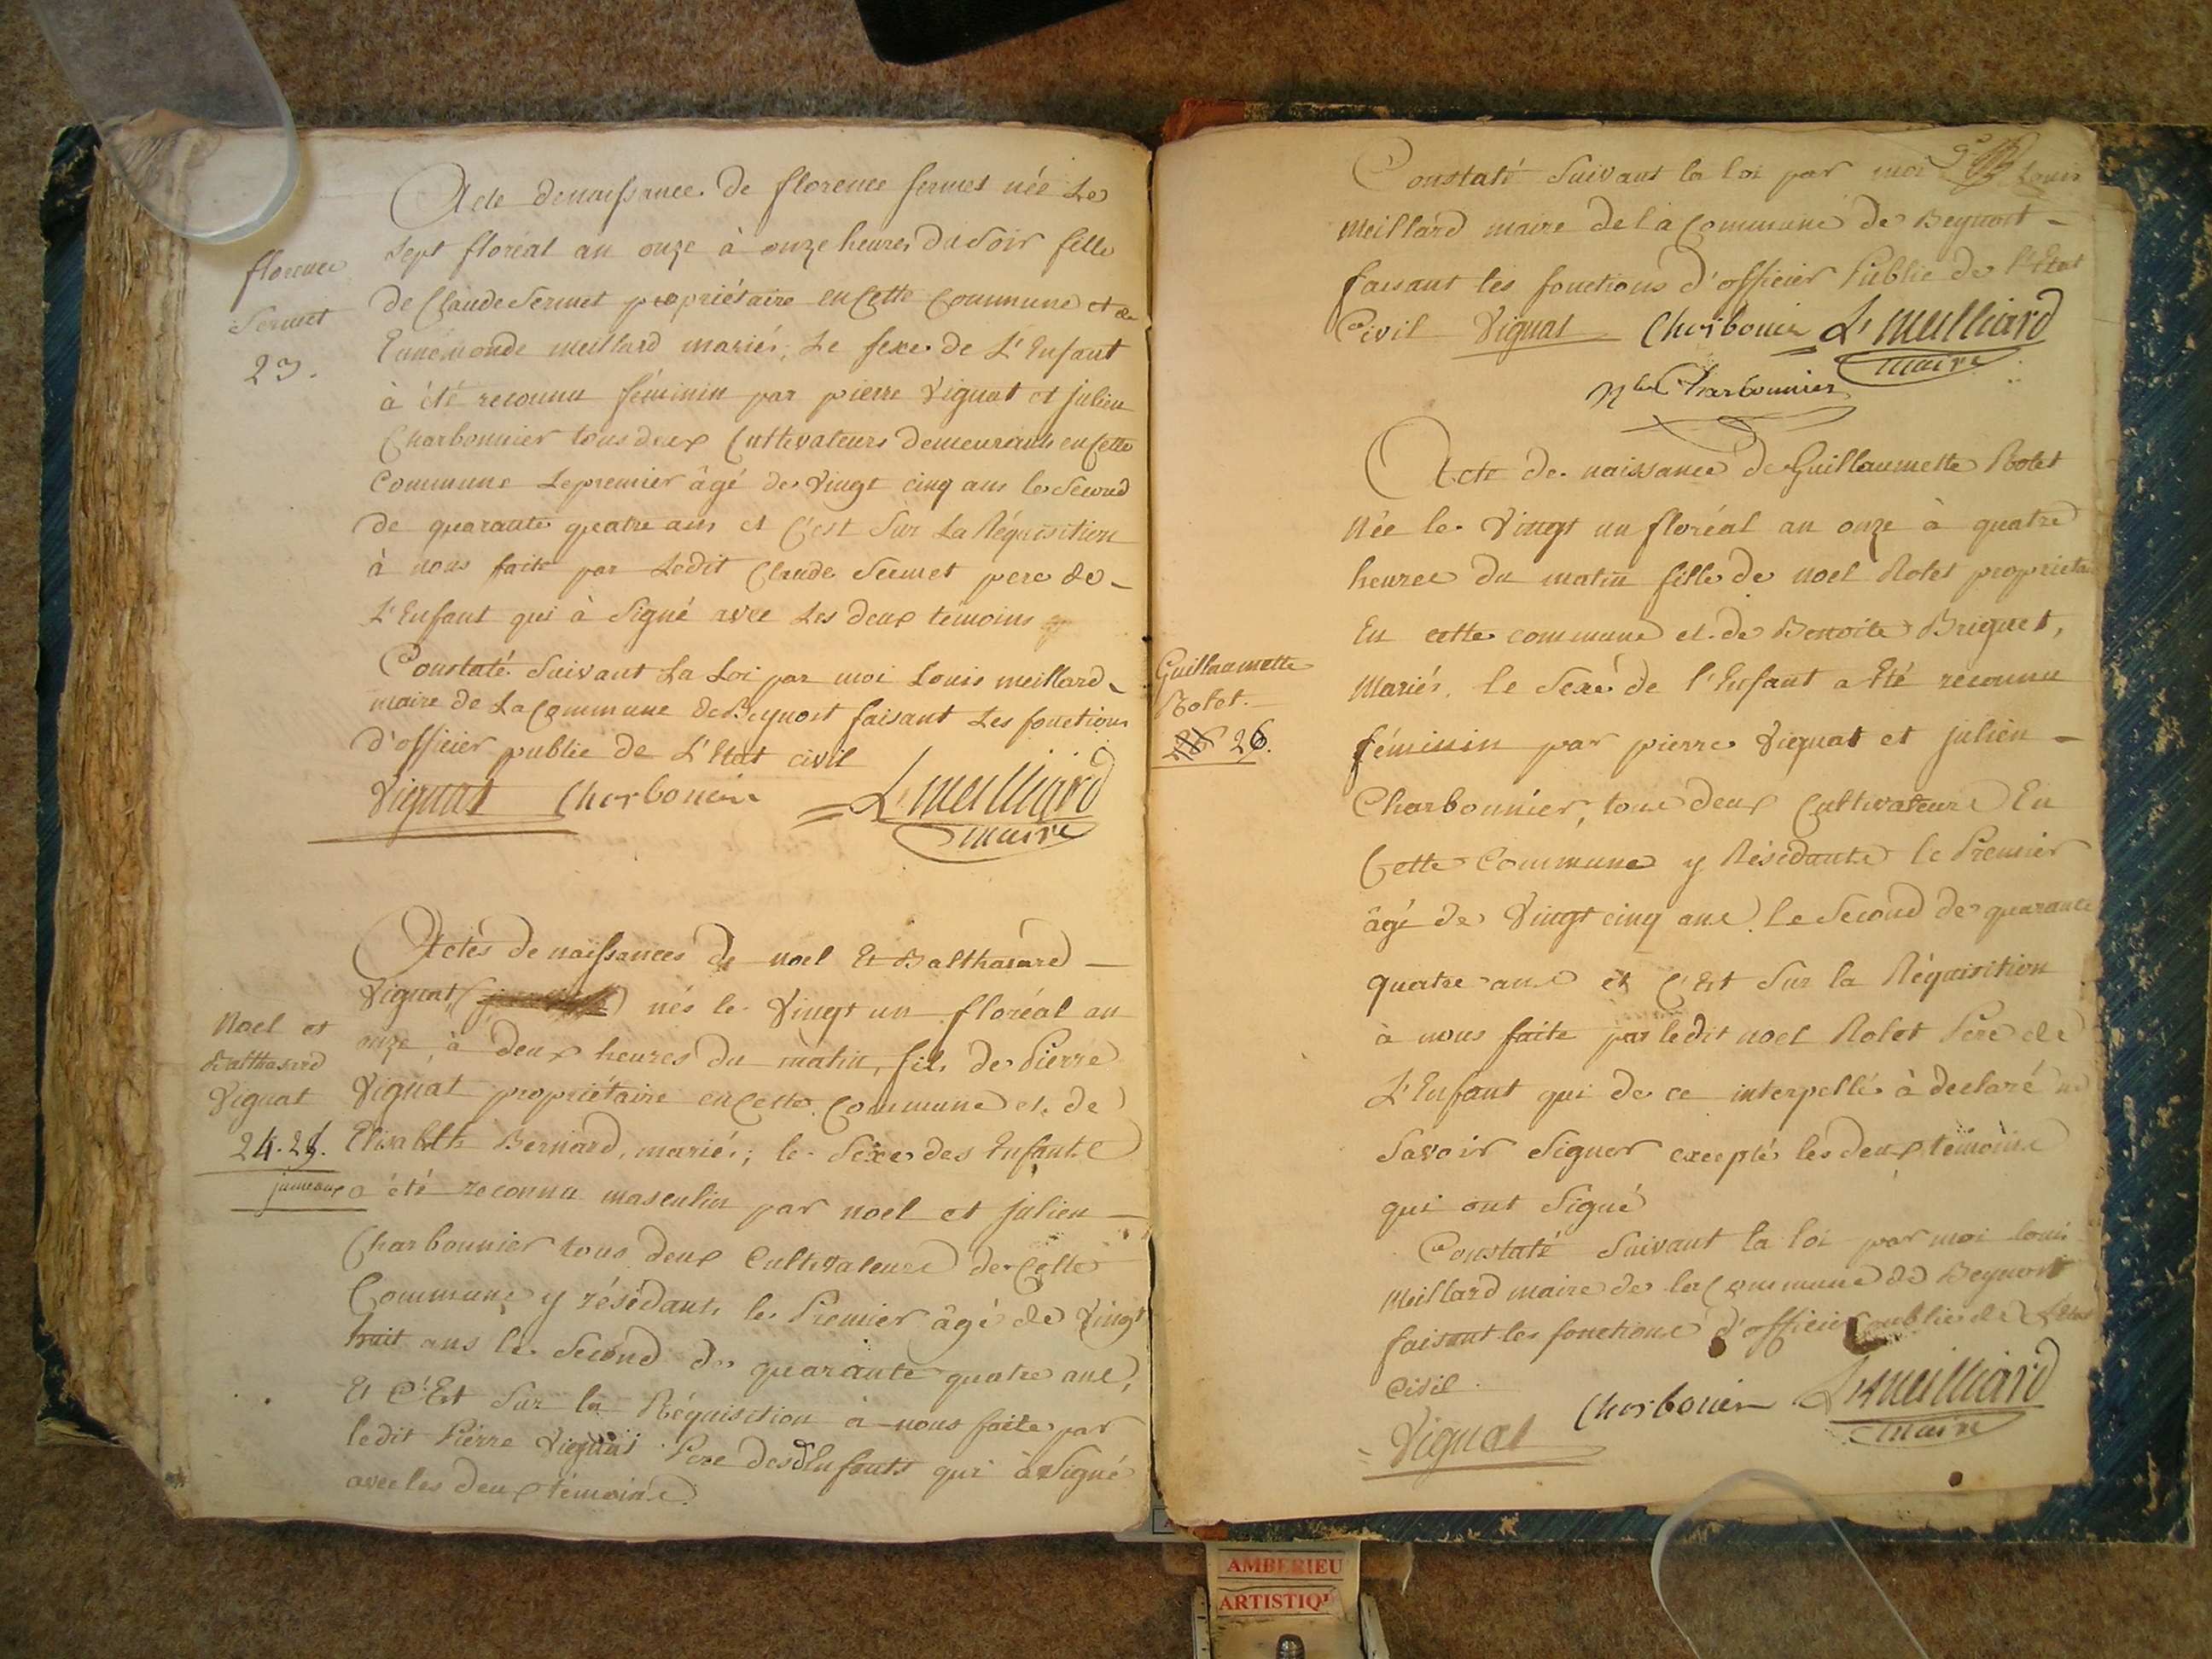 Acte denaissance de florence sermet née Le
sept floréal an onze à onze heures du Soir fille
de Claude Sermet propriétaire en Cette Commune et de
Ennemonde meillard mariés, Le sexe de L'Enfant
à été reconnu féminin par pierre Vignat et julien
Charbonnier tous deux Cultivateurs demeurants en Cette
Commune Le premier âgé de Vingt cinq ans le Second
de quarante quatre ans et C'est Sur La Réquisition
à nous faite par Ledit Claude Sermet pere de
L'Enfant qui à Signé avec Les deux témoins
Constaté Suivant La Loi par moi Louis meillard
maire de La Commune de Beynost faisant Les fonctions
d'officier public de L'Etat civil
Vignat Chorbonier L meilliard
maire
florence
Sermet
23.
Actes de naissances de noel Et Balthasard
Vignat nés le Vingt un floréal an
onze, à deux heures du matin, fils de Pierre
Vignat propriétaire en Cette Commune et de
Elisabeth Bernard, mariés; le Sexe des Enfants
a été reconnu masculin par noel et julien
Charbonnier tous deux Cultivateurs de Cette
Commune y résidants le Premier âgé de Vingt
huit ans le Second de quarante quatre ans,
Et C'Est Sur la Réquisition à nous faite par
ledit Pierre Vignat Pere des Enfants qui à Signé
avec les deux témoins.
Noel et
Balthasard
Vignat
24. 25.
jumeaux
Constaté Suivant la loi par moi Louis
Meillard maire de la Commune de Beynost
faisant les fonctions d'officier Public de l'Etat
Civil Vignat Chorbonier L meilliard
maire
Nel Charbonnier
Acte de naissance de Guillaumette Rolet
Née le Vingt un floréal an onze à quatre
heures du matin fille de noel Rolet proprieta
En cette commune et de Benoite Briquet,
Mariés. le Sexe de l'Enfant a Eté reconnu
féminin par pierre Vignat et julien
Charbonnier, tous deux Cultivateurs En
Cette Commune y Résidants le Premier
âgé de Vingt cinq ans. Le Second de quarante
quatre ans et C'Est Sur la Réquisition
à nous faite par ledit noel Rolet Père de
L'Enfant qui de ce interpellé à declaré ne
Savoir Signer excepté les deux témoins
qui ont Signé
Constaté Suivant la loi par moi louis
Meillard maire de la Commune de Beynost
faisant les fonctions d'officier public de l'Etat
Civil.
Chorbonier L meilliard
maire
Vignat
Guillaumette
Rolet.
26.
AMBERIEU
ARTISTIQ